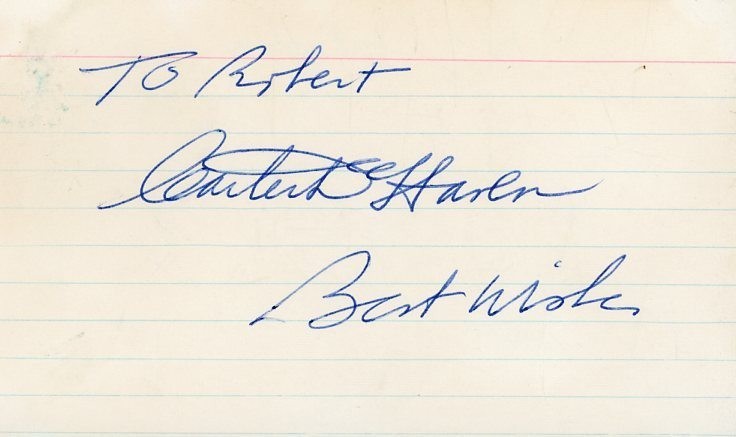 To Robert
Carter DeHaven
Best Wishes